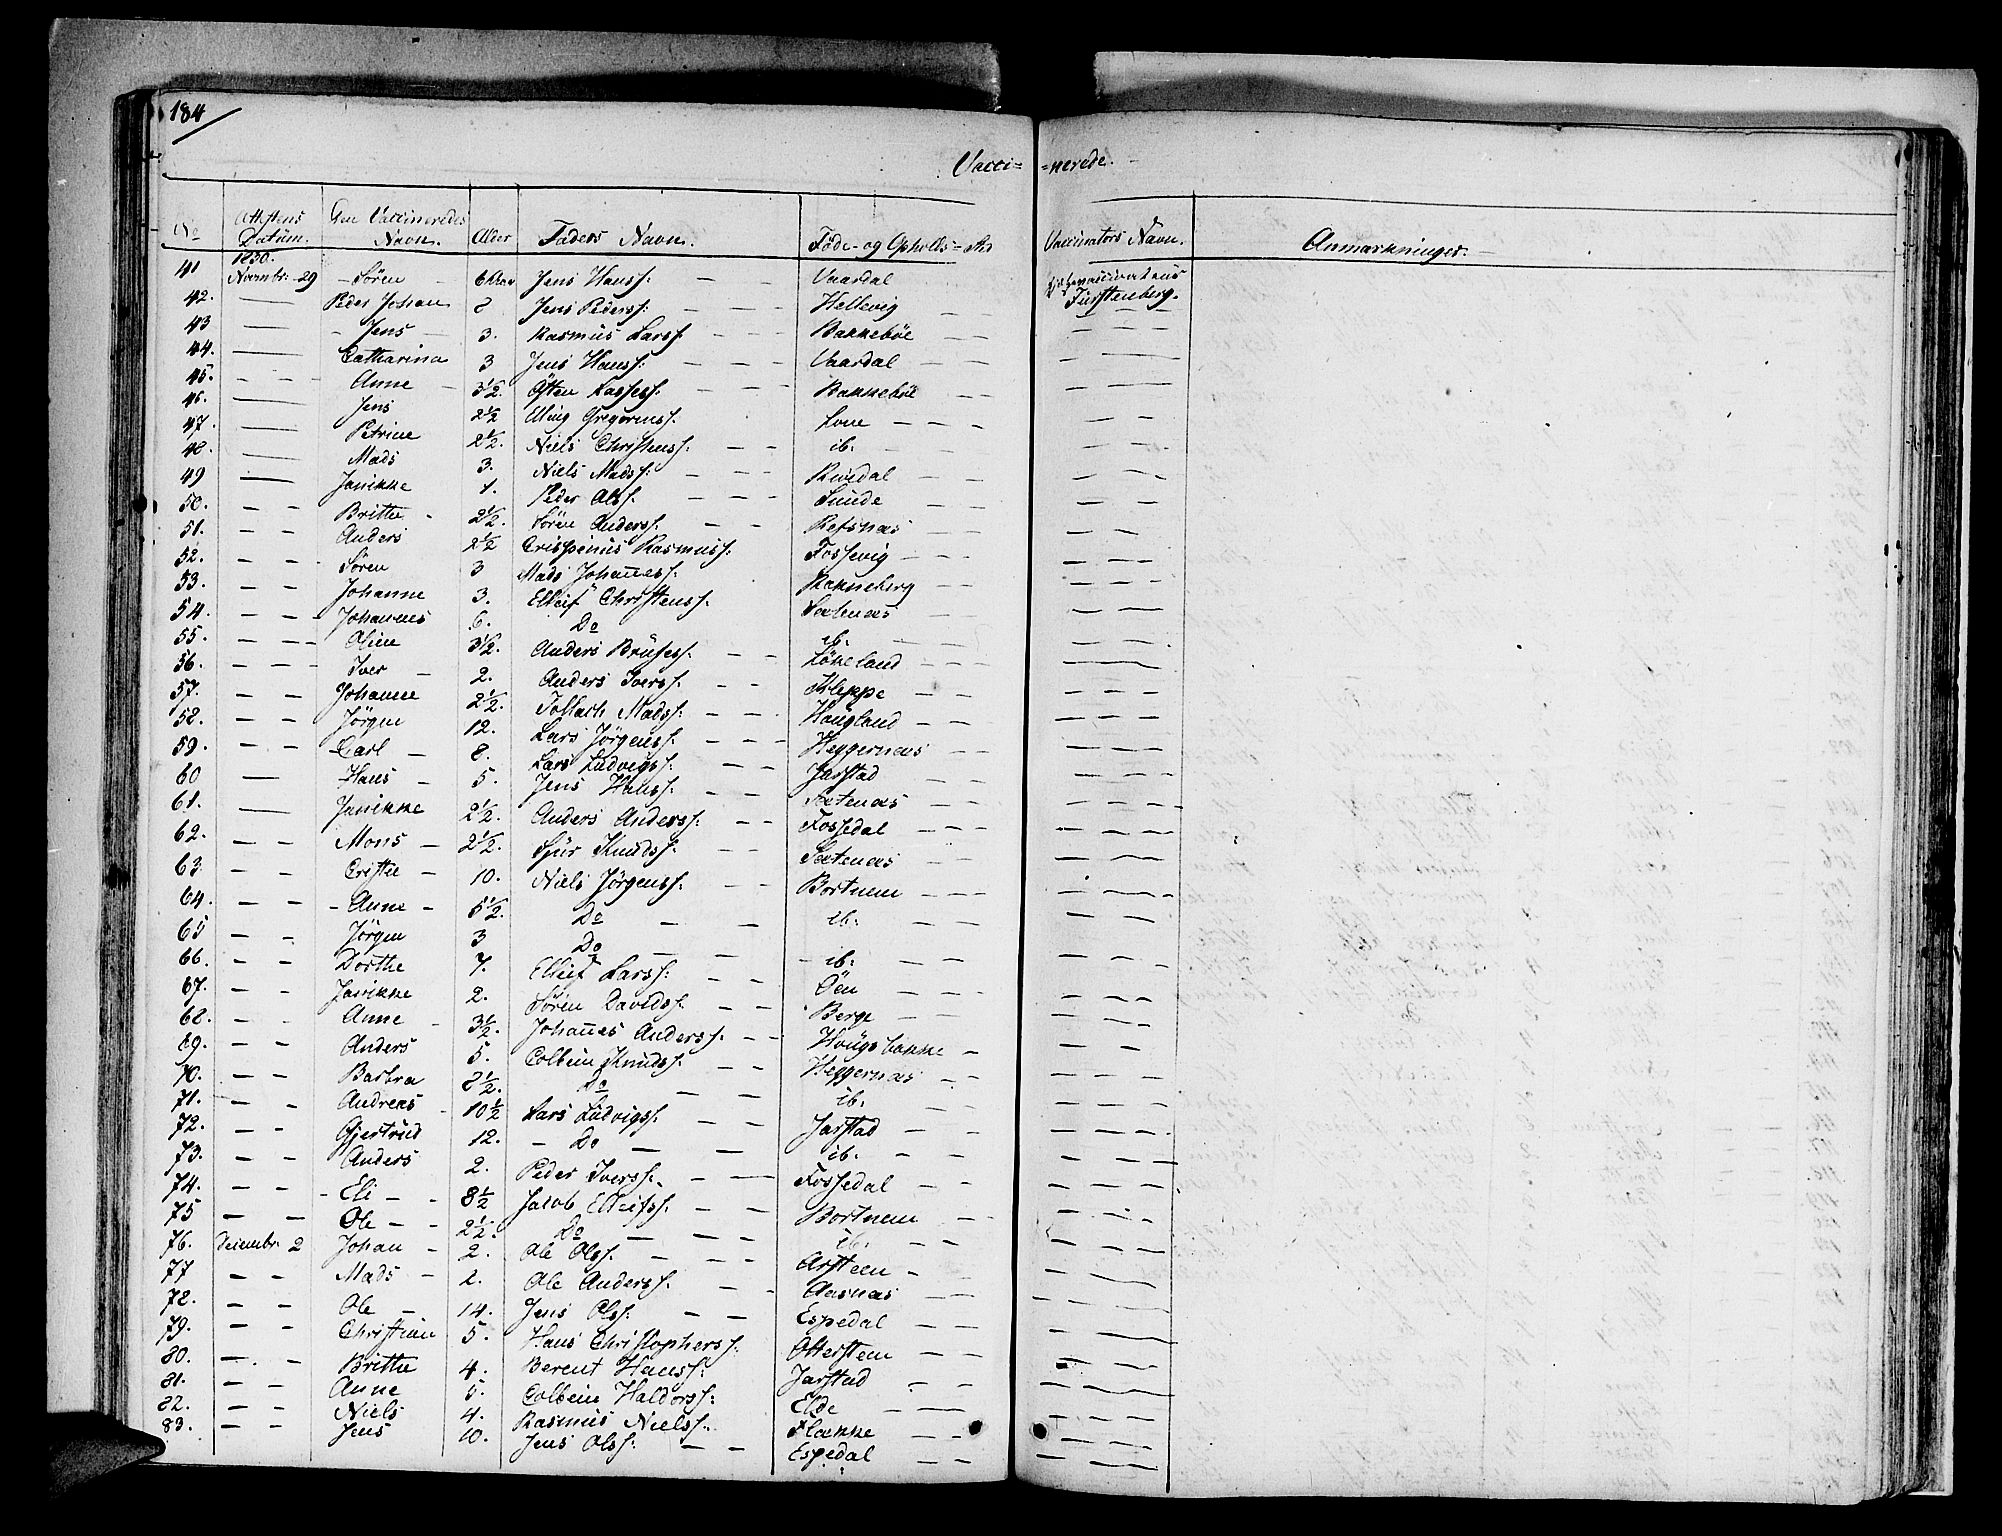 184
Vacci= =nerede.
No Attestens Datum. Den Vaccineredes Navn. Alder Faders Navn. Føde- og Opholds=Sted Vaccinators Navn. Anmærkninger.
1830.
41 Novembr: 29 - Søren 6 Jens Hanss: Vaardal
42. — Peder Johan 8 Jens Peders: — — Hellevig — — Fürstenberg.
43 — - Jens — 3. Rasmus Larss. — — Bakkebøe — —
44. — Catharina 3 Jens Hanss: — — Vaardal — —
45. — — Anne 3½. Østen Lasses. — — Bakkebøe — —
46. — Jens 2½ Elling Gregoriuss. Lone — — —
47. — Petrine 2½. Niels Christenss. — — ib. — —
48. — Mads 3. Niels Madss: — — — Rivedal — —
49 — Janikke 1. Peder Olss. — — — Sunde — —
50. — — Britthe 2½. Søren Anderss. — — Refsnæs — —
51. — — Anders 2½ Crispinus Rasmuss. Fossevig — —
52. — — Søren 3 Mads Johaness: Rakneberg — —
53. — — Johanne 3. Elleif Christenss. Sætenæs — —
54. — — Johannes 6. Do ib. — —
55. — — Oline 3½. Anders Brüsess. — — Løkeland — — —
56. — — Iver — 2. Anders Iverss. — — Kleppe — —
57. — — Johanne 2½. Tollach Madss: — — Haugland — —
58. — — Jørgen 12. Lars Jørgenss. — — — Heggernæs — —
59. — — Carl — 8. Lars Ludvigss. — — Jarstad — —
60 — Hans — 5. Jens Hanss. — — Sætenæs — —
61. — Janikke 2½. Anders Anderss: — — Fossedal — — —
62. — — Mons — 2½. Sjur Knudss: — — Sætenæs — —
63. — — Cristie — 10. Niels Jørgenss. — — Bortnem — — —
64. — — - Anne — 5½. Do — — ib: — —
65 — — Jørgen 3 Do — — ib: — —
66. — — Dorthe 7. Elleif Larss: — — Öen — — —
67. — — Janikke 2. Søren Davidss. — — Berge — —
68. — — Anne — 3½. Johanes Anderss. — — Hougsbakke —
69. — — Anders 5. Colbein Knudss. — — Heggernæs — —
70. — — Barbra 8½. Do — — ib. — —
71. — — Andreas 10½ Lars Ludvigss. — — Jarstad — —
72. — — Gjertrud 12. — Do — — ib. — —
73. — — Anders 2. Peder Iverss. — — Fossedal — —
74. — — - Eli — — 8½ Jacob Elleifss. — — Bortnem — —
75 — — Ole — — 2½. Do — — — ib. — —
76. Decembr: 2 Johan — 2. Ole Olss. — — Arsteen —
77 — — Mads — 2. Ole Anderss. — — Aasnæs — —
78. — — Ole — 14. Jens Olss. — — Espedal — —
79. — — Christine 5. Hans Christophers. Ottersteen — —
80. — — Britthe 4. Berent Hanss: Jarstad — —
81. — — Anne 5. Colbein Haldorss: Elde — —
82. — — Niels 4. Rasmus Nielss. Flække — —
83. — — Jens 10. Jens Olss. — — Espedal — —